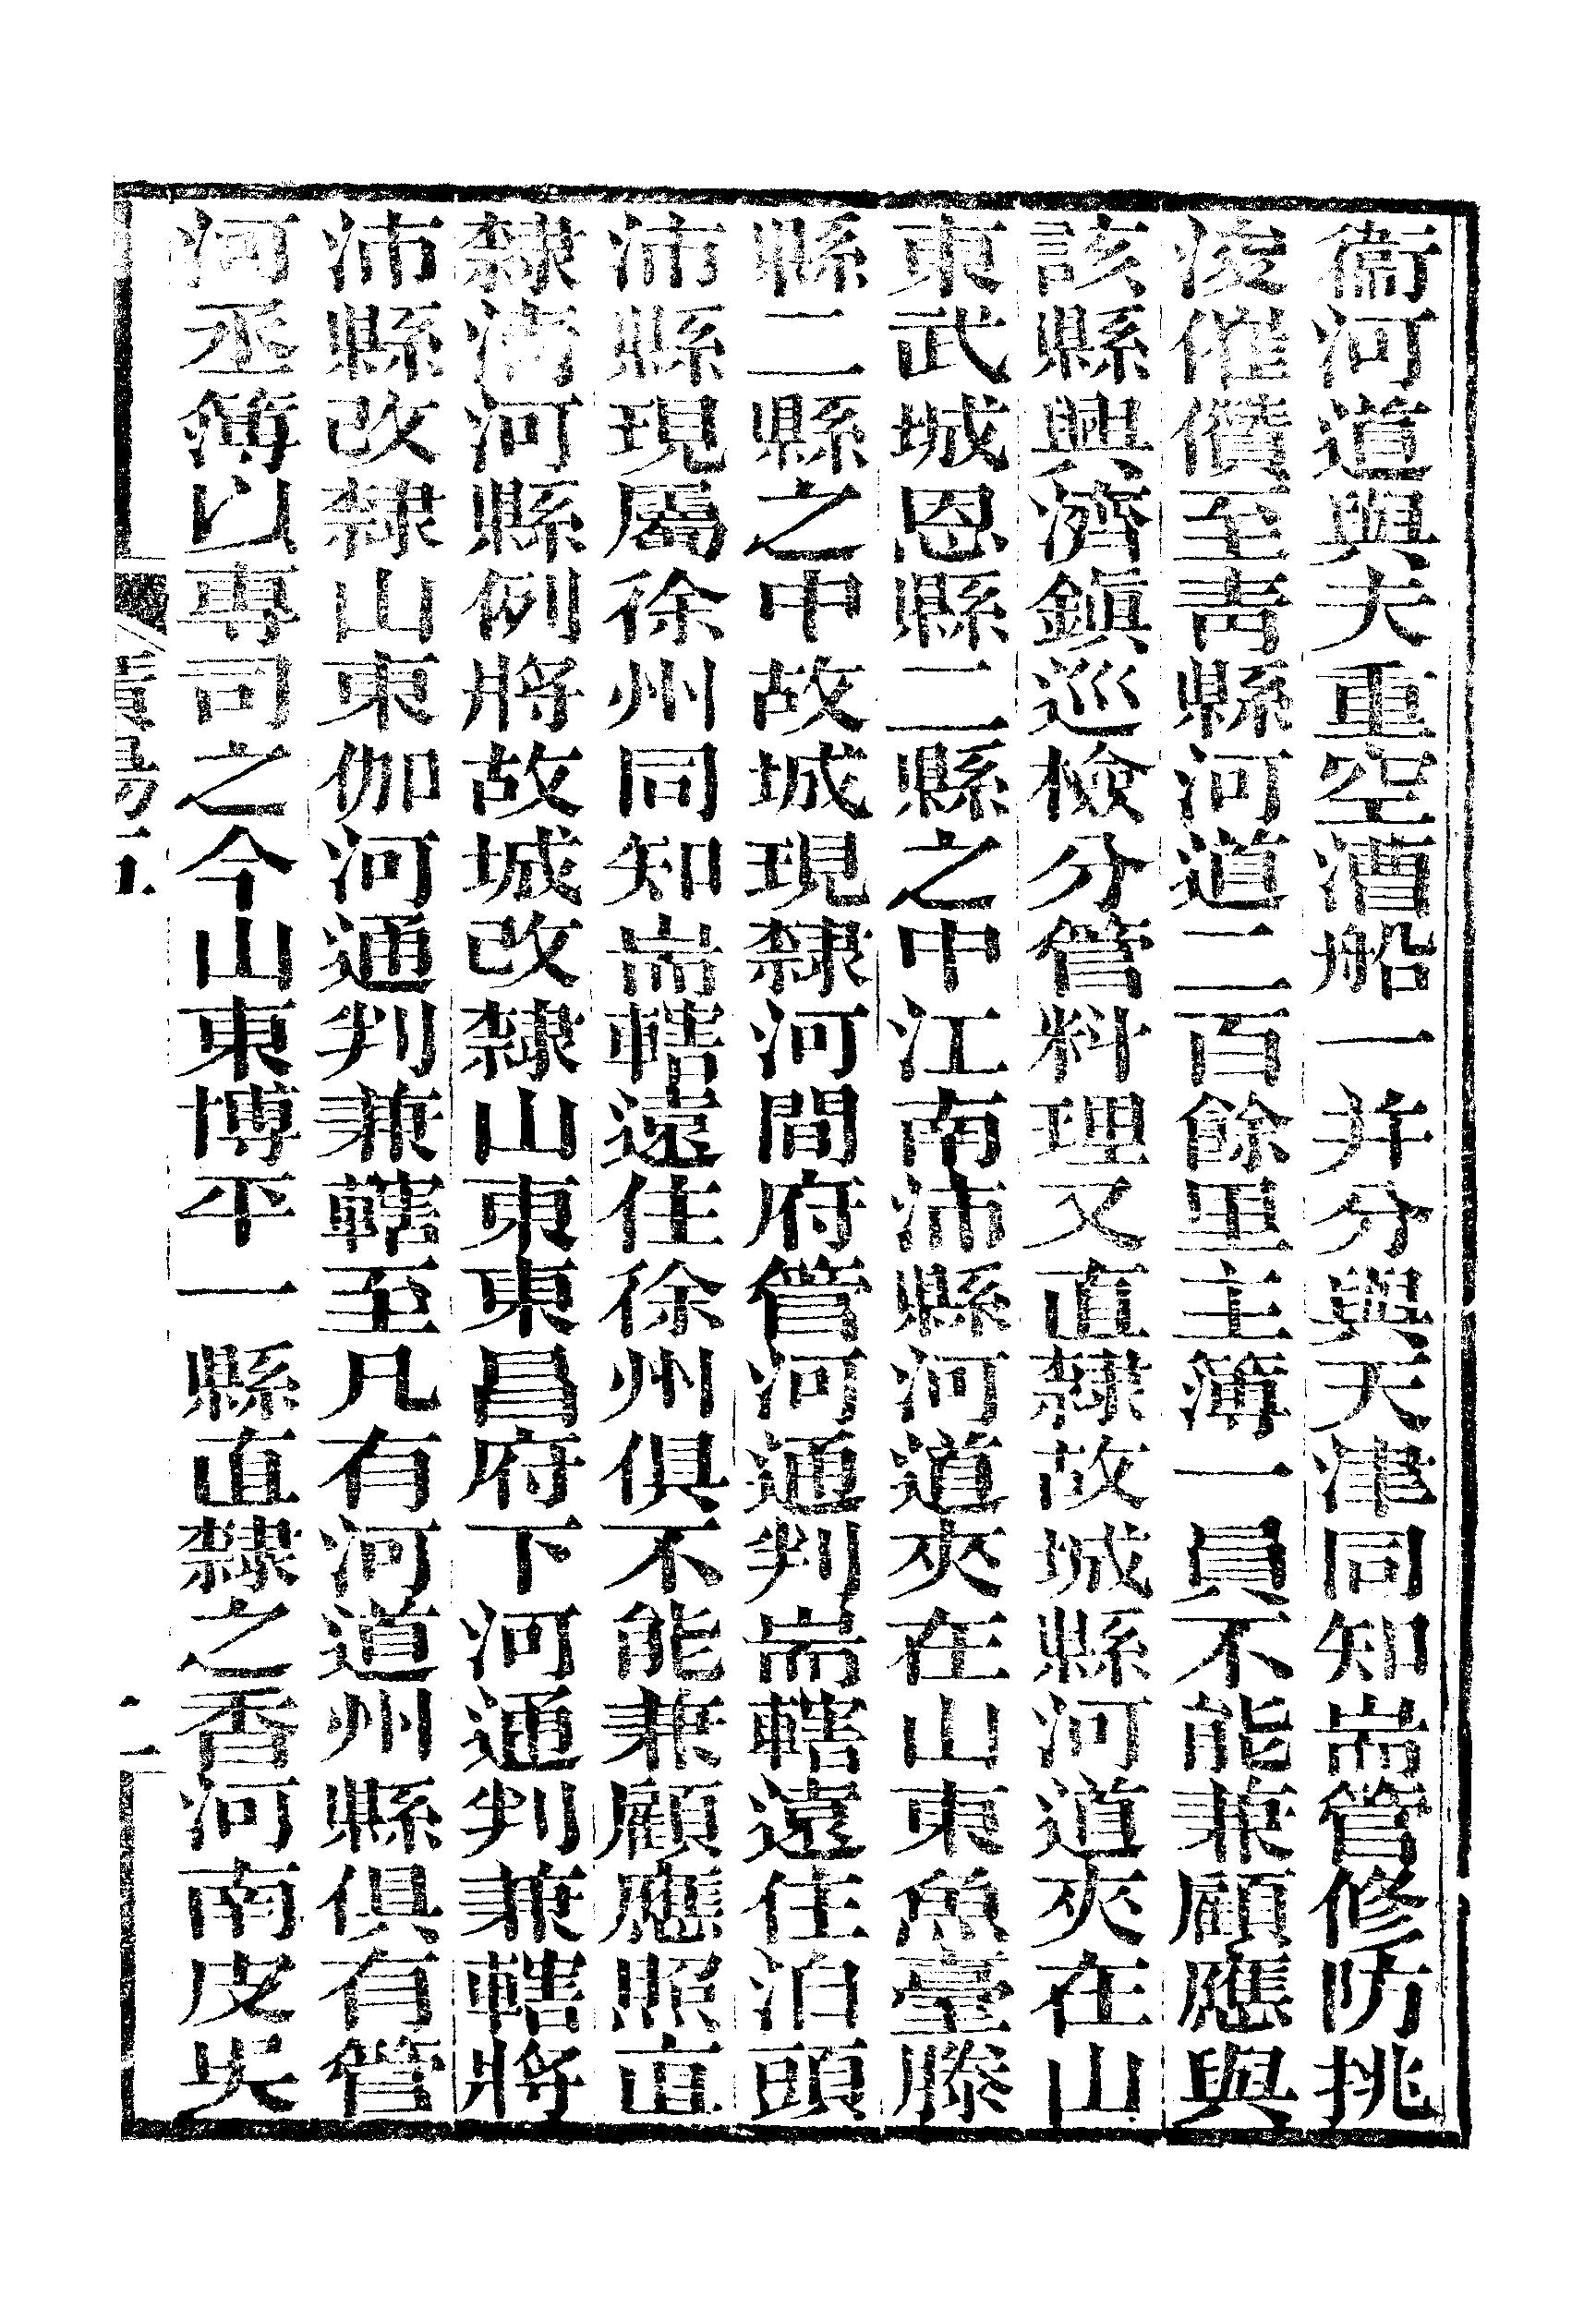 衞河道與夫重空漕船一并分與天津同知耑管修防挑
浚催儹至靑縣河道二百餘里主簿一員不能兼顧應與
該縣興濟鎮巡檢分管料理又直隸故城縣河道夾在山
東武城恩縣二縣之中江南沛縣河道夾在山東魚臺滕
縣二縣之中故城現隸河間府管河通判耑轄遠住泊頭
沛縣現屬徐州同知耑轄遠住徐州俱不能兼顧應照直
隸淸河縣例將故城改隸山東東昌府下河通判兼轄將
沛縣改隸山東伽河通判兼轄至凡有河道州縣俱有管
河丞簿以專司之今山東博平一縣直隸之香河南皮吳